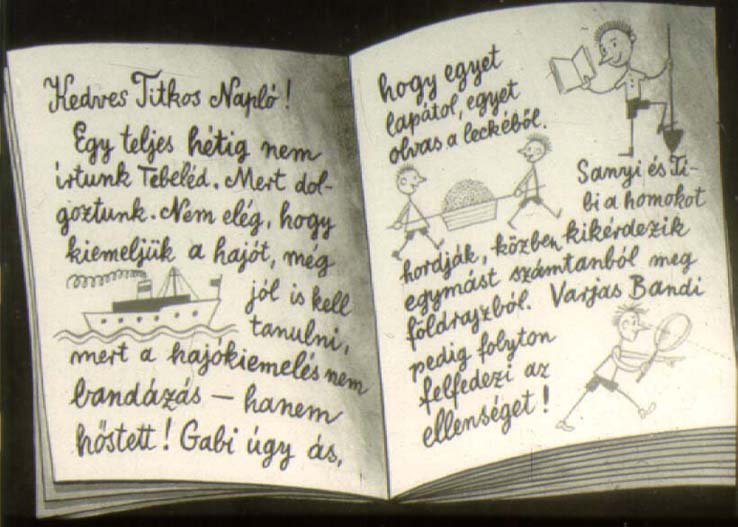 Kedves Titkos Napló!
Egy teljes hétig nem
írtunk Tebeléd. Mert dol-
goztunk. Nem elég, hogy
kiemeljük a hajót, még
jól is kell
tanulni,
mert a hajókiemelés nem
bandázás – hanem
hőstett! Gabi úgy ás,
hogy egyet
lapátol, egyet
olvas a leckéből.
Sanyi és Ti-
bi a homokot
hordják, közben kikérdezik
egymást számtanból meg
földrajzból. Varjas Bandi
pedig folyton
felfedezi az
ellenséget!